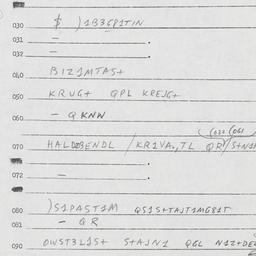 030 $ )1B36P1TIN
031 — .
032 — .
040 BIZ1MTAS+
050 KRUG+ QPL KREJG+
060 — QKNW
070 HALDZBENDL /KR1VA,TL QR/S+N1
072 — .
080 )S1PAST1M QS1S+TAJT1MG81T
081 — QR
090 OWST3L1S+ S+AJN1 QGL N1Z+DE